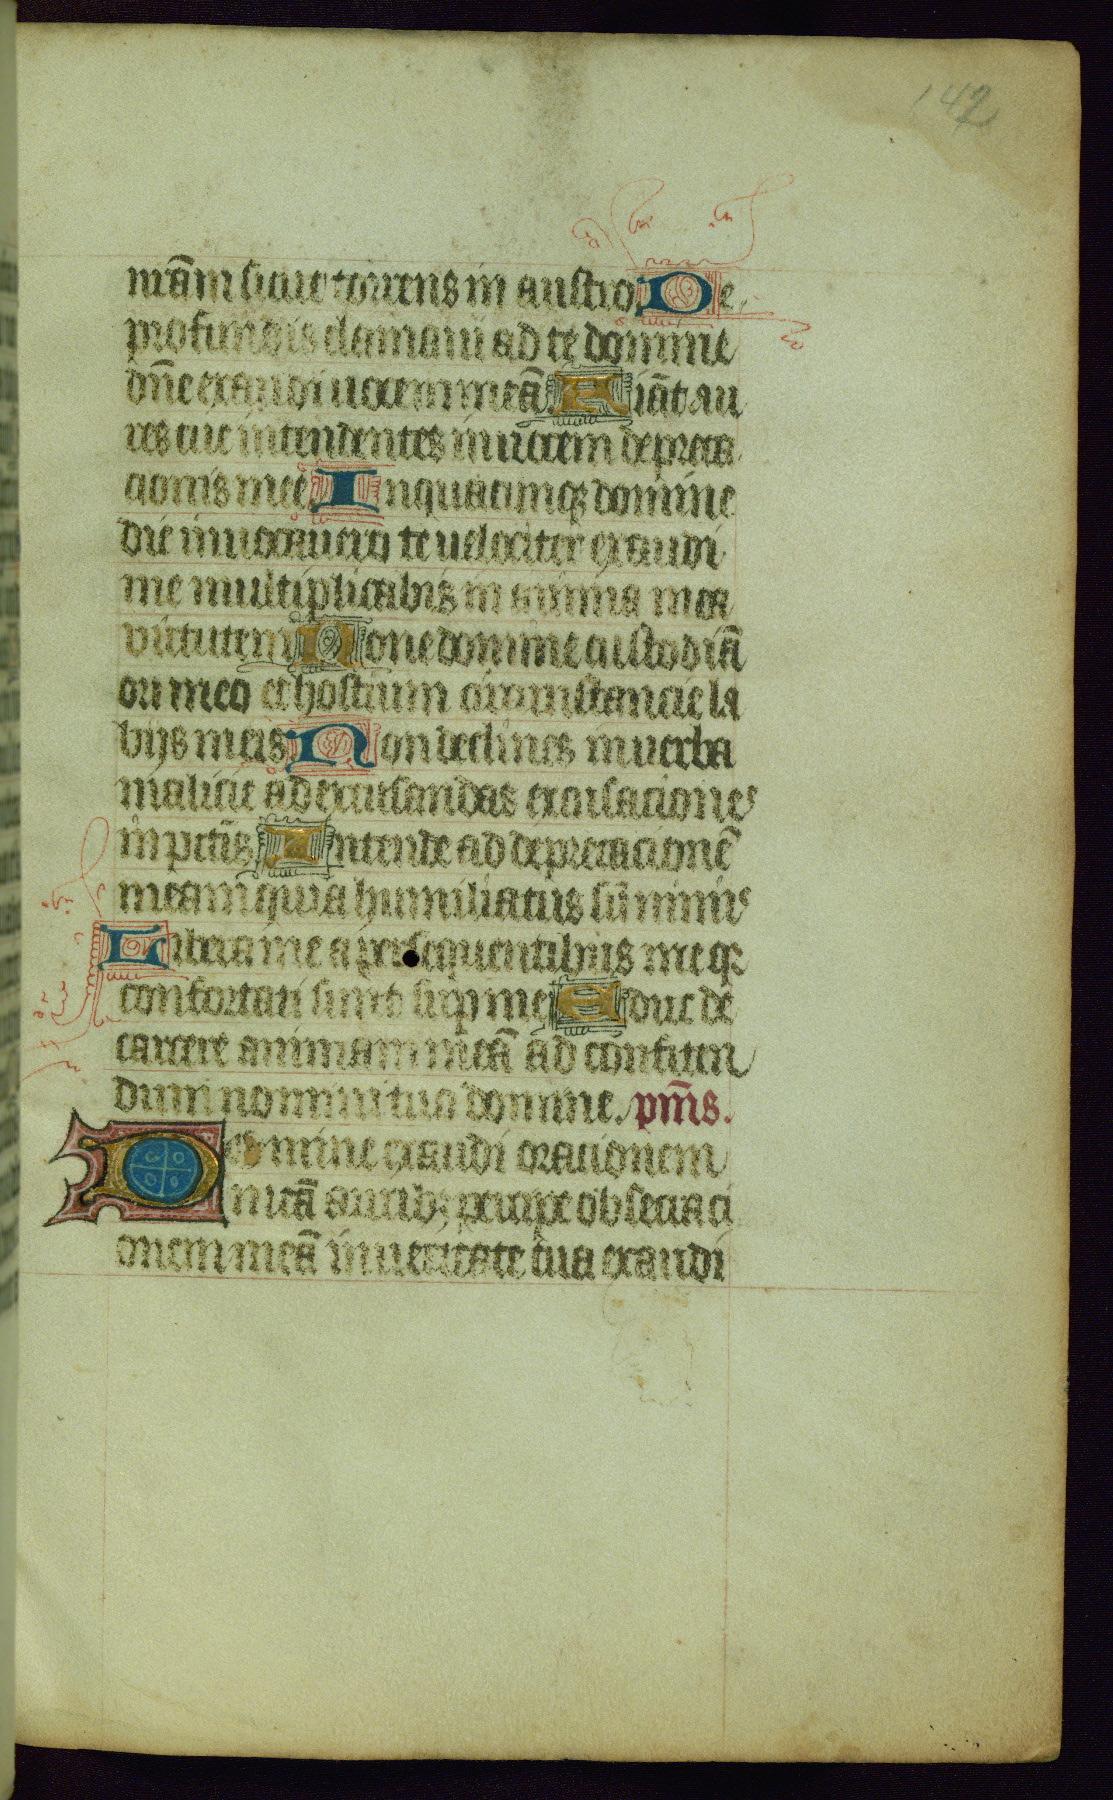 142
nr̄am sicut torrens in austro De
profundis clamaui ad te domine
dn̄e exaudi uocem meā Fiāt au
res tue intendentes in uocem depreca
cionis mee In quacumqꝫ domine
die inuocauero te velociter exaudi
me multiplicabis in anima mea
virtutem Pone domine custodiā
ori meo et hostium circumstancie la
bijs meis Non declines in uerba
malicie ad excusandas excusaciones
in pctīs Intende ad deprecacionē
meam quia humiliatus sū nimis
Libera me a persequentibus me qꝛ
confortati sunt sup me Educ de
carcere animam meā ad confiten
dum nomini tuo domine. pm̄s.
Domine exaudi oracionem
meā auribꝫ percipe obsecraci
onem meā in ueritate tua exaudi